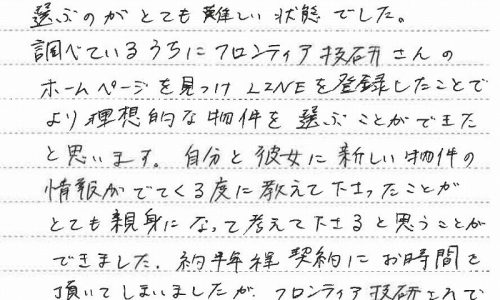 選ぶのがとても難しい状態でした。
調べているうちにフロンティア技研さんの
ホームページを見つけLINEを登録したことで
より理想的な物件を選ぶことができた
と思います。自分と彼女に新しい物件の
情報がでてくる度に教えて下さったことが
とても親身になって考えて下さると思うことが
できました。約半年程契約にお時間を
頂いてしまいましたが、フロンティア技研さんで